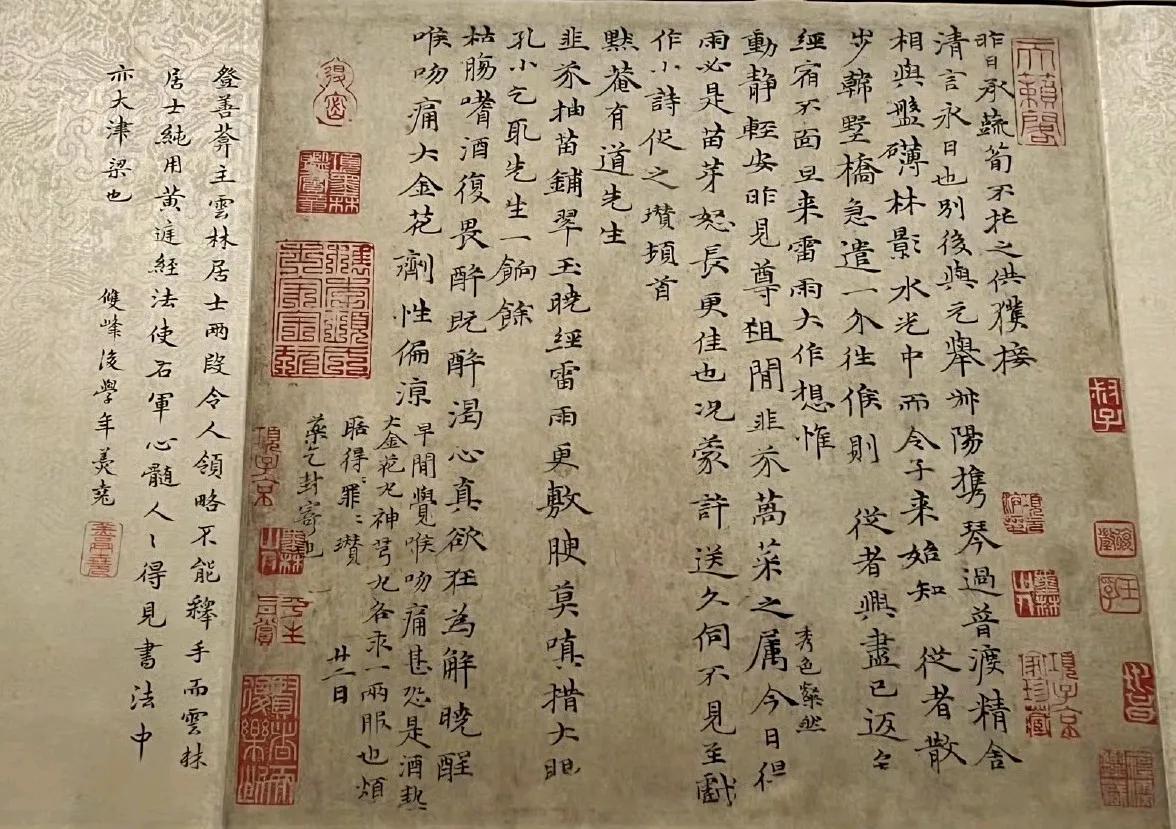 昨日承蔬筍不托之供獲接
清言永日也別後與元舉叔陽攜琴過普渡精舍
相與盤礴林影水光中而令子來始知　從者散
步韓墅橋急遣一介徃候則　從者興盡已返矣
經宿不面旦来雷雨大作想惟
動靜輕安昨見尊俎間韭芥萵菜之属秀色粲然今日但
雨必是苗芽怒長更佳也况蒙許送久伺不見至戲
作小詩促之瓚頓首
默菴有道先生
韭芥抽苗鋪翠玉曉經雷雨更敷腴莫嗔措大眼
孔小乞取先生一餉餘
枯腸嗜酒復畏醉既醉渴心真欲狂為解曉酲
喉吻痛大金花劑性偏涼
早間覺喉吻痛甚恐是酒熱
大金花丸神芎丸各求一兩服也煩
聒得罪得罪瓚
藥乞封寄也
廿二日
登善菴主雲林居士兩段令人領略不能釋手而雲林
居士純用黄庭經法使右軍心髓人人得見書法中
亦大津梁也
雙峰後學年羹堯
天籟閣
項子京
家珍藏